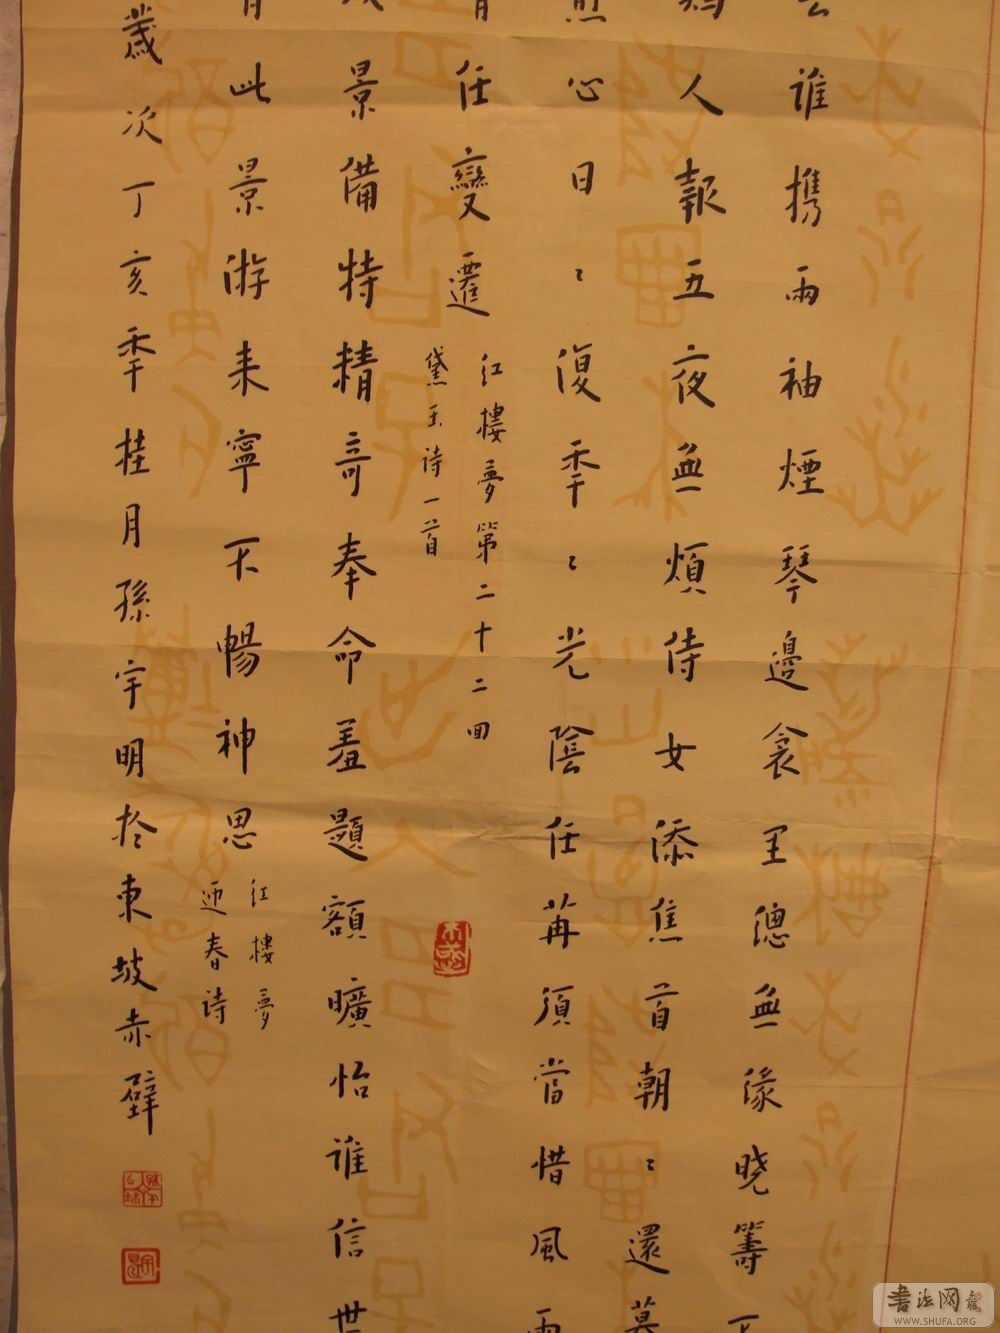 谁携兩袖煙琴邊衾里總無缘晓籌不
人報五夜無煩侍女添焦首朝〻還暮
煎心日〻復年〻光陰任苒須當惜風雨
任變遷
红樓夢第二十二回
黛玉诗一首
景備特精奇奉命羞題額曠怡谁信世
有此景游来寧不暢神思
红樓夢
迎春诗
歲次丁亥年桂月孫宇明於東坡赤壁
書法网
WWW.SHUFA.ORG